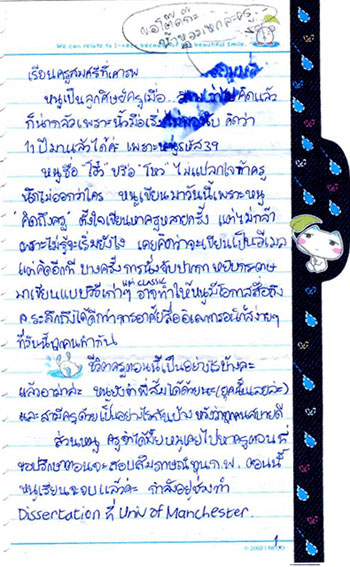 ขอโต๊ดก๊ะ
น้ำหอมหกค่ะครู
We can relate to beautiful smile.
เรียนครูสมศรีที่เคารพ
หนูเป็นลูกศิษย์ครูเมื่อ คิดแล้ว
ก็น่ากลัวเพราะนิ้วมือเริ่มไม่พอนับ คิดว่า
11 ปีมาแล้วได้ค่ะ เพราะหนูรหัส 39
หนูชื่อ "โส" หรือ "โหว" ไม่แปลกใจถ้าครู
นึกไม่ออกว่าใคร หนูเขียนมาวันนี้เพราะหนู
คิดถึงครู ตั้งใจเขียนหาครูหลายครั้ง แต่ไม่กล้า
เพราะไม่รู้จะเริ่มยังไง เคยคิดว่าจะเขียนเป็นอีเมล
แต่คิดอีกที บางครั้ง การนั่งจับปากกา หยิบกระดาษ
มาเขียนแบบวิธีเก่าๆ แต่ classic อาจทำให้หนูมีโอกาสสื่อถึง
ค.ระลึกถึงได้ดีกว่าการอาศัยสื่ออิเลกทรอนิกส์ง่ายๆ
ที่วันนี้ทุกคนทำกัน
ชีวิตครูตอนนี้เป็นอย่างไรบ้างคะ
แล้วอาม่าล่ะ หนูยังจำพี่ส้มได้ด้วยนะ
และสามีครูด้วยเป็นอย่างไรกันบ้าง หวังว่าทุกคนสบายดี
ส่วนหนู ครูจำได้มั้ยหนูเคยไปหาครูตอนที่
ขอปรึกษาตอนจะสอบสัมภาษณ์ทุน ก.พ. ตอนนี้
หนูเรียนจะจบแล้วค่ะ กำลังอยู่ช่วงทำ
Dissertation ที่ Univ of Manchester.
1